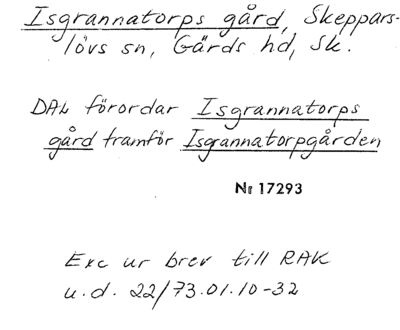 Isgrannatorps gård, Skeppars-
lövs sn, Gärds hd, Sk.
DAL förordar Isgrannatorps
gård framför Isgrannatorpgården
Nr 17293
Exc ur brev till RAK
u.d. 22/73.01.10-32